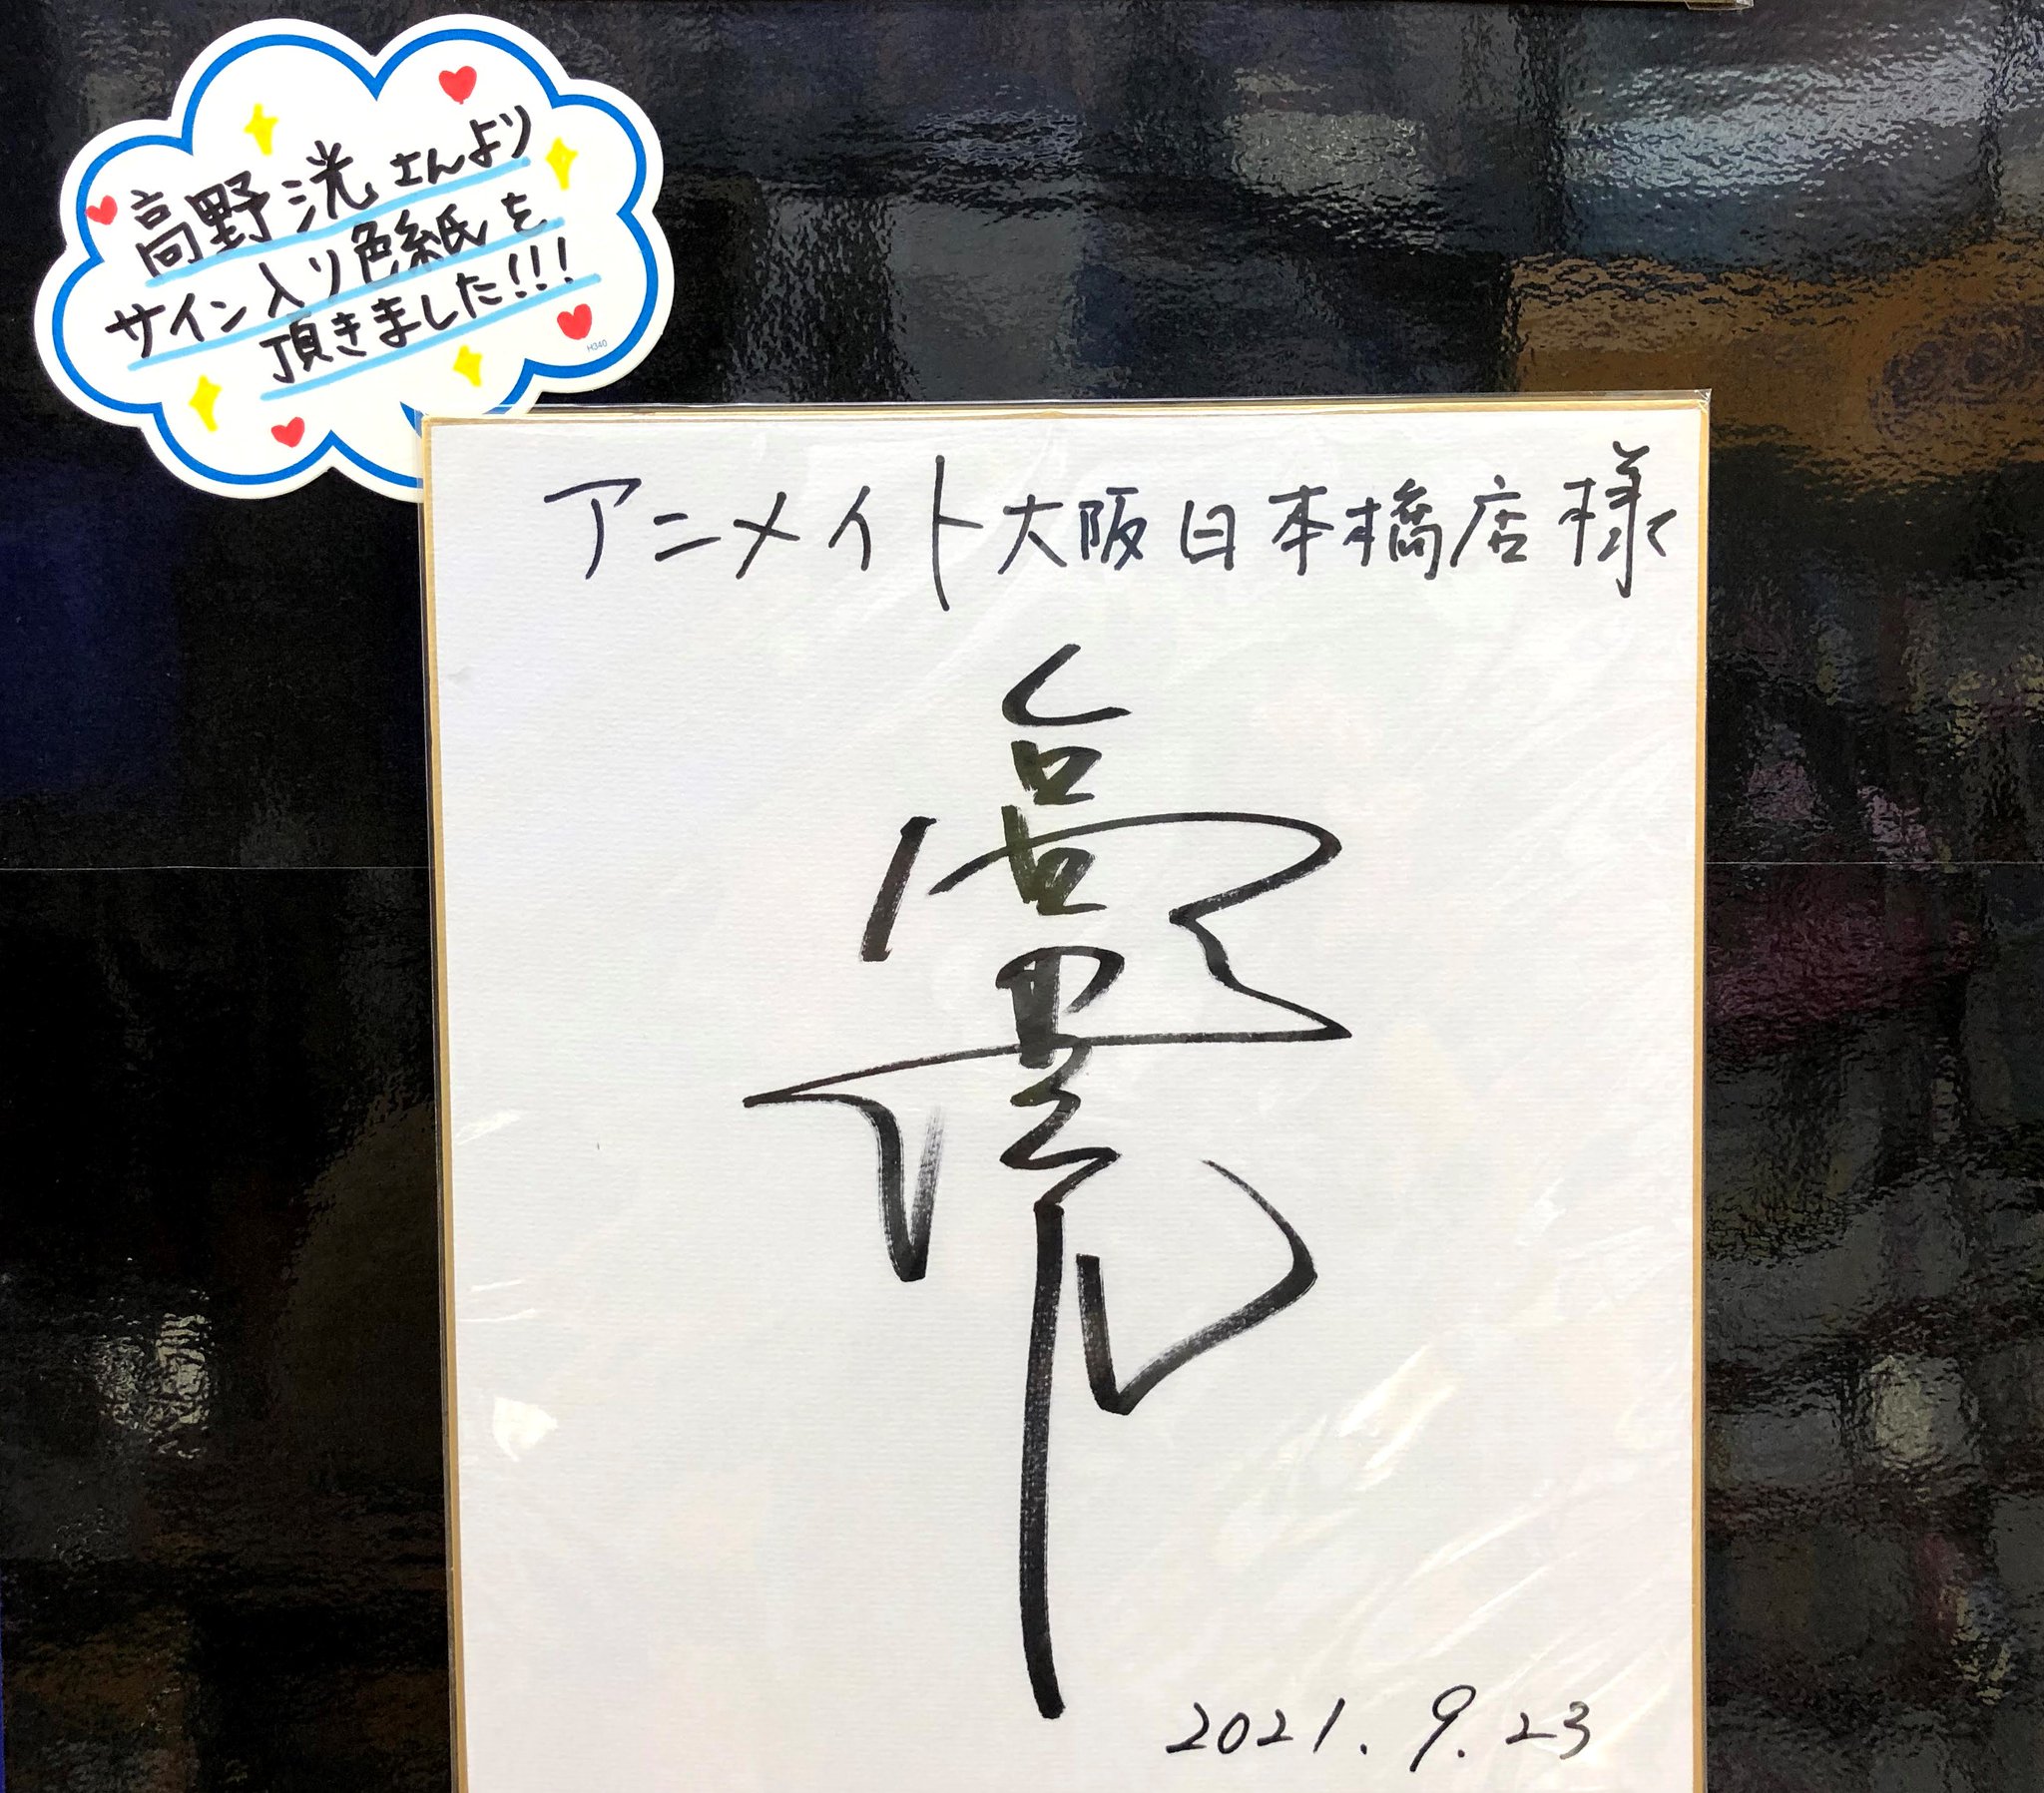 高野洸さんより
サイン入り色紙を
頂きました!!!
H340
アニメイト大阪日本橋店様
2021.9.23